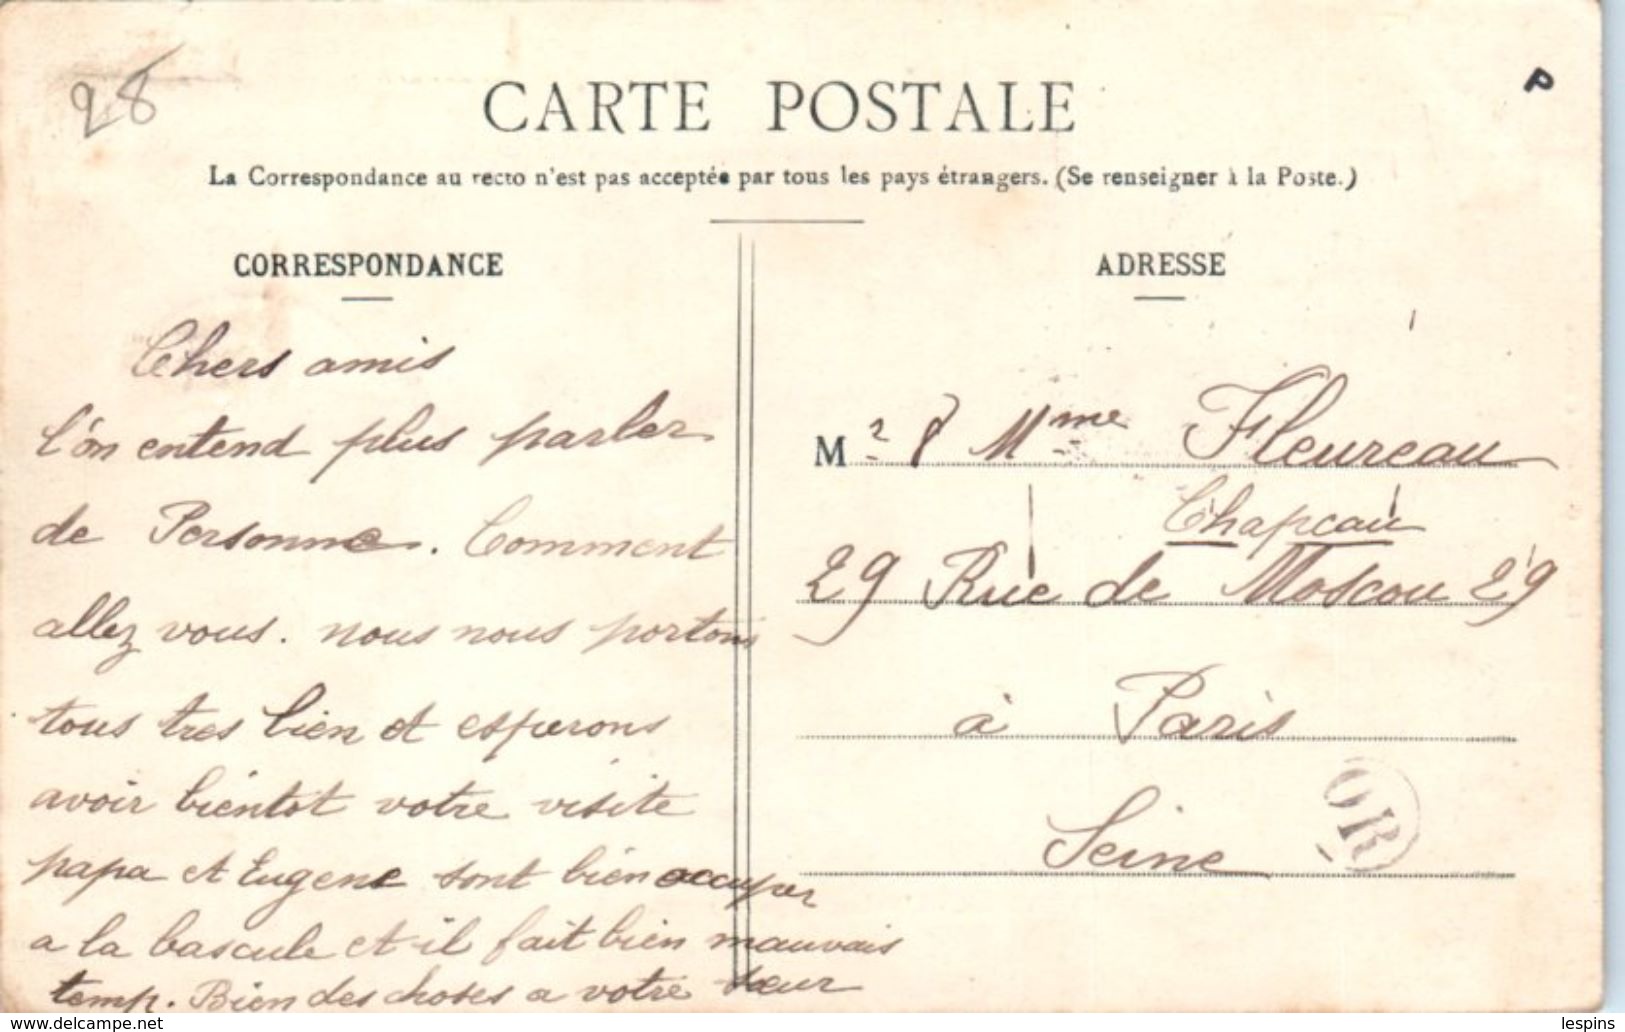 28
P
CARTE POSTALE
La Correspondance au recto n'est pas acceptée par tous les pays étrangers. (Se renseigner à la Poste.)
CORRESPONDANCE
Chers amis
l'on entend plus parler
de Personne. Comment
allez vous. nous nous portons
tous tres bien et esperons
avoir bientot votre visite
papa et Eugene sont bien occuper
a la bascule et il fait bien mauvais
temp. Bien des choses a votre sœur
ADRESSE
Mr & Mme Fleureau
Chapeau
29 Rue de Moscou 29
à Paris
Seine
OR
delcampe.net
lespins